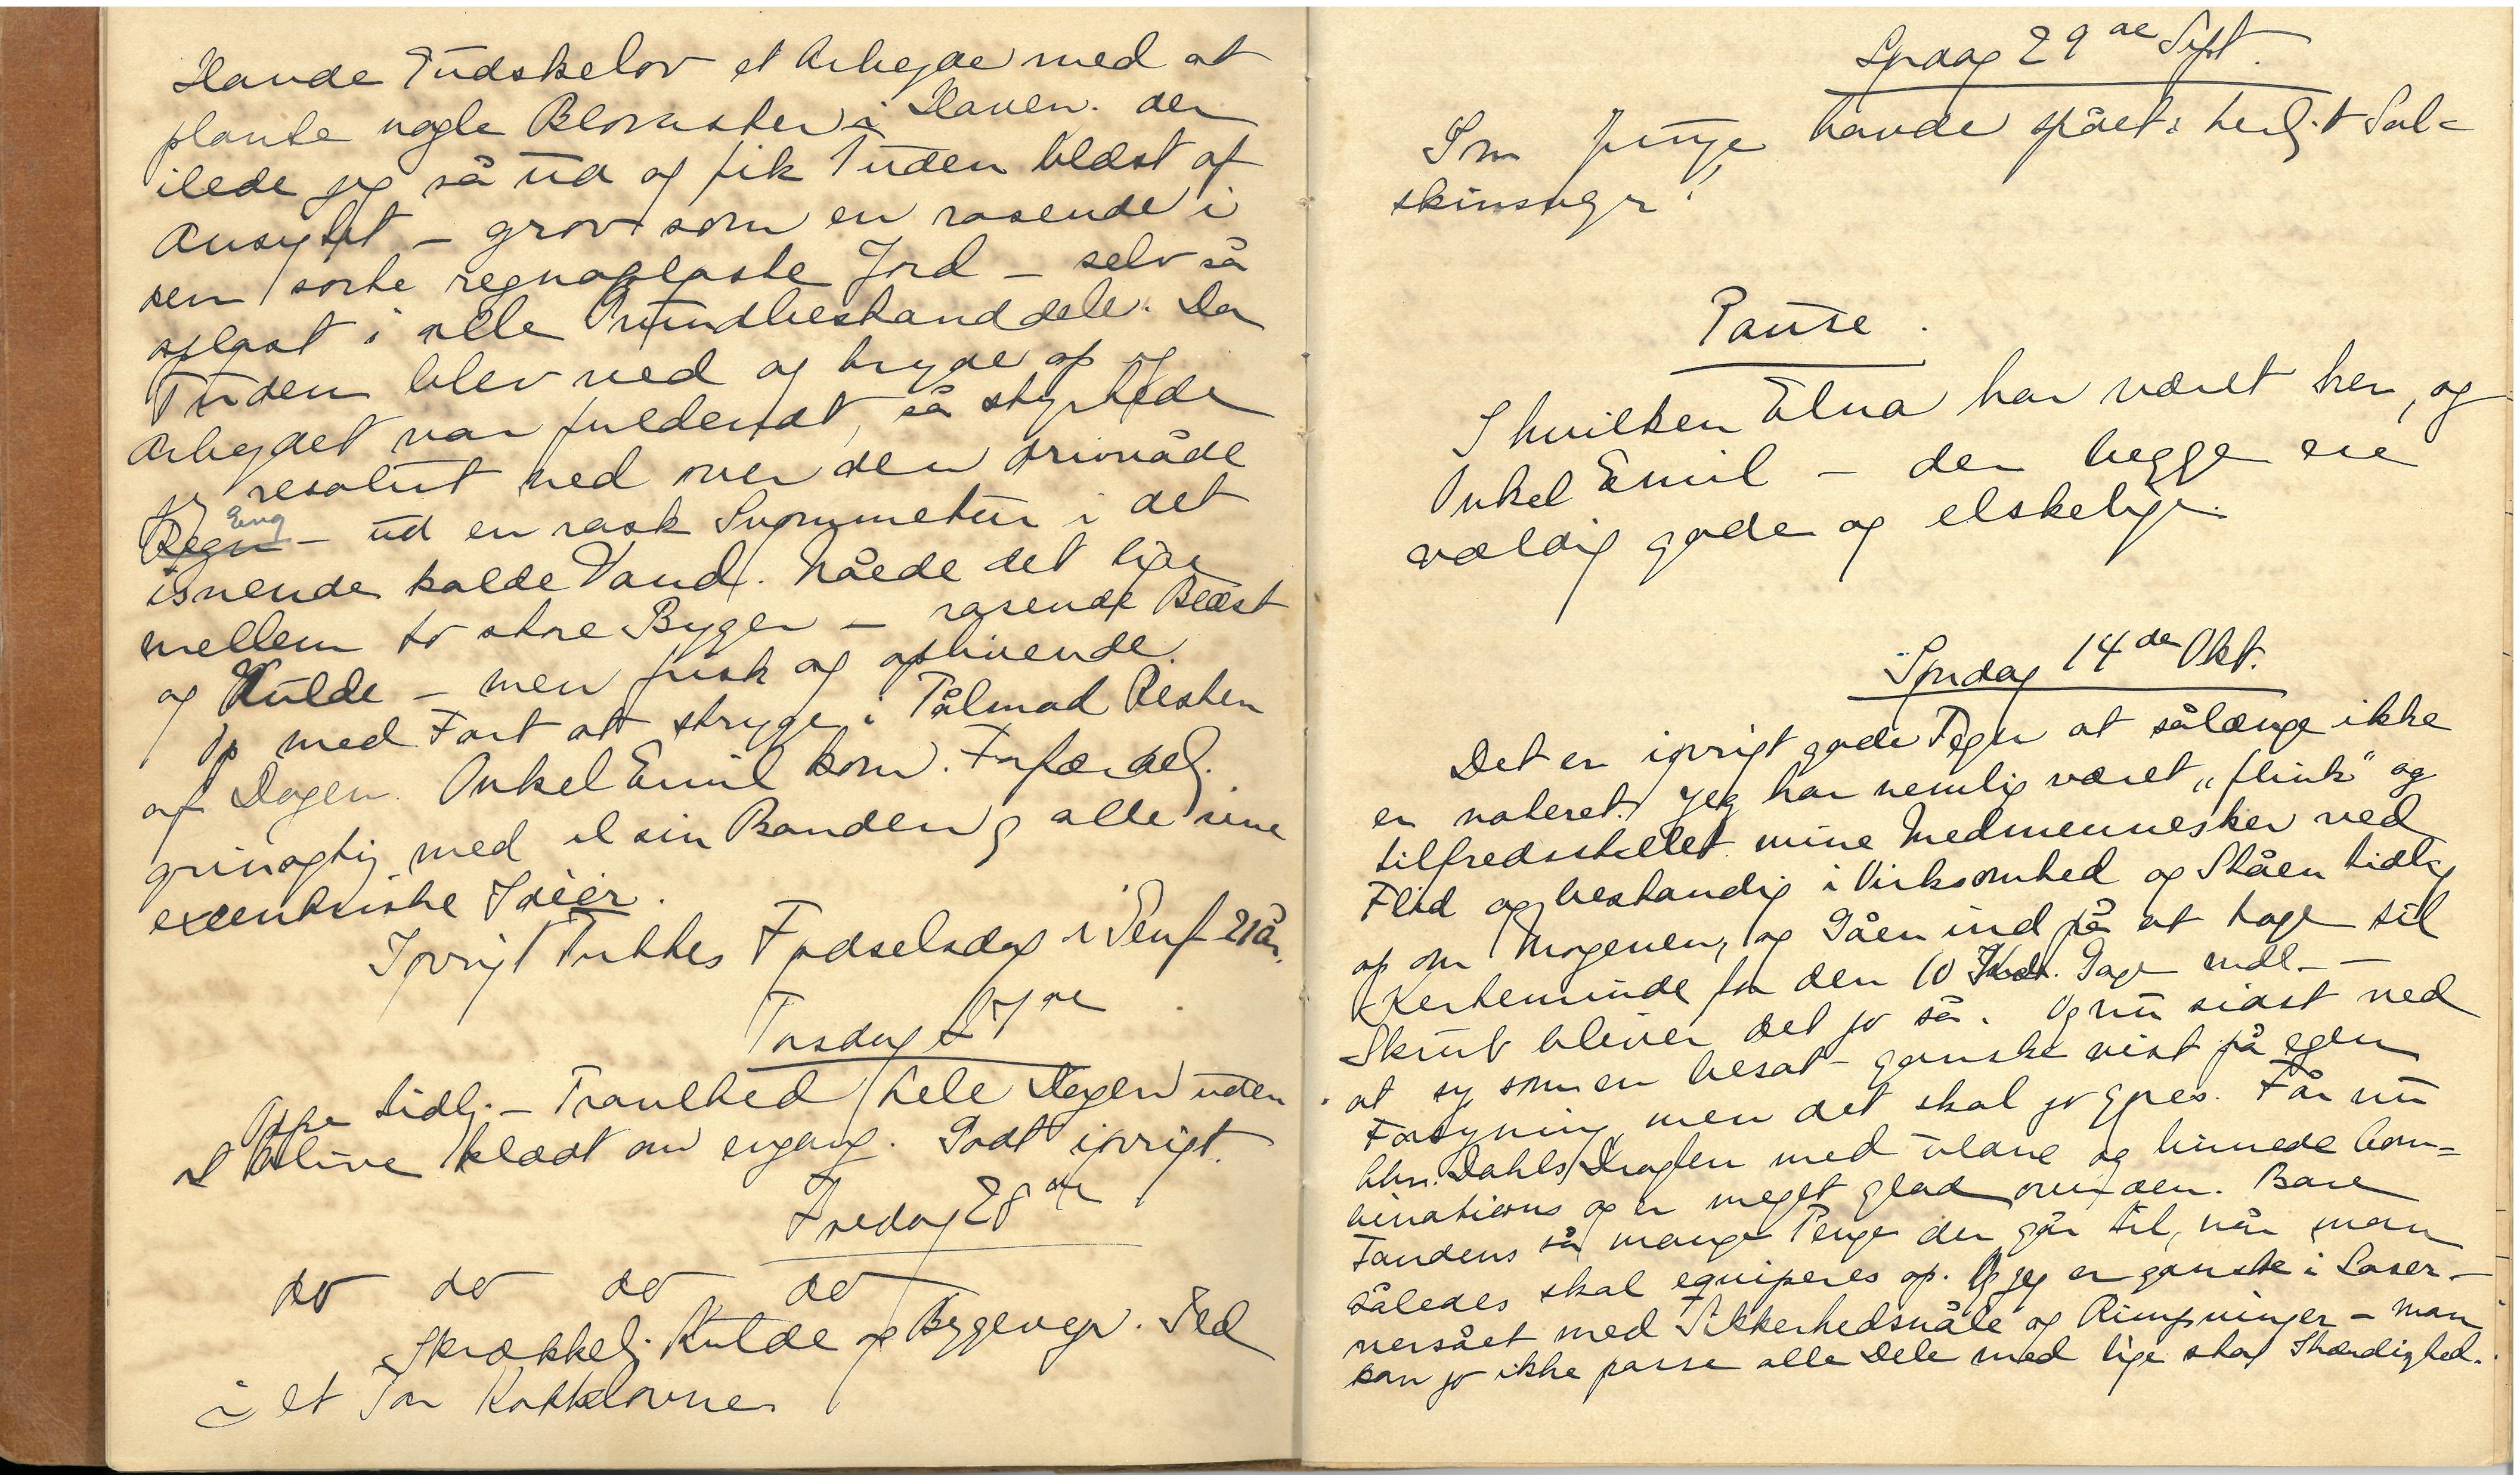 Havde Gudskelov et Arbejde med at
plante nogle Blomster i Haven. der
ilede jeg så ud og fik Tuden blæst af
Ansigtet – grov som en rasende i
den sorte regnopløste Jord – selv så
opløst i alle Grundbestanddele. Da
Tuden blev ved og bryde op og
Arbejdet var fuldendt, så styrtede
jeg resolut ned over den drivvåde
Regn Eng – ud en rask Svømmetur i det
isnende kolde Vand. Nåede det lige
mellem to store Byger – rasende Blæst
og Kulde – men frisk og oplivende.
Op med Fart att stryge i Pålmad Resten
af Dagen. Onkel Emil kom. Forfærdelj.
grinagtig med al sin Banden og alle sine
excentriske Idéer.
Iøvrigt Tuttes Fødselsdag i Genf 21 år.
Torsdag 27de
Oppe tidlj. – Travlhed hele Dagen uden
at blive klædt om engang. Godt iøvrigt.
Fredag 28de
do do do do
Skrækkelj. Kulde og Bygevejr. Ild
i et Par Kakkelovne.
Lørdag 29de Sept.
Som Junge havde spået: herligt Sol=
skinsvejr!
Pause.
I hvilken Elna har været her, og
Onkel Emil – der begge ere
vældig gode og elskelige.
Søndag 14de Okt.
Det er iøvrigt gode Tegn at sålænge ikke
er noteret. Jeg har nemlig været „flink" og
tilfredsstillet mine Medmennesker ved
Flid og bestandig i Virksomhed og Ståen tidlig
op om Morgenen, og Gåen ind på at tage til
Kerteminde for den 10 Gage mdl. –
Skrub bliver det jo så. Og nu sidst ved
at sy som en besat – ganske vist på egen
Forsyning men det skal jo gøres. Får nu
Chr. Dahls Dragten med ulane og linnede Com=
binations og er meget glad over den. Bare
Fandens så mange Penge der går til, når man
således skal equiperes op. Og jeg er ganske i Laser –
versået med Sikkerhedsnåle og Rimpninger – man
kan jo ikke passe alle Dele med lige stor Ihærdighed.